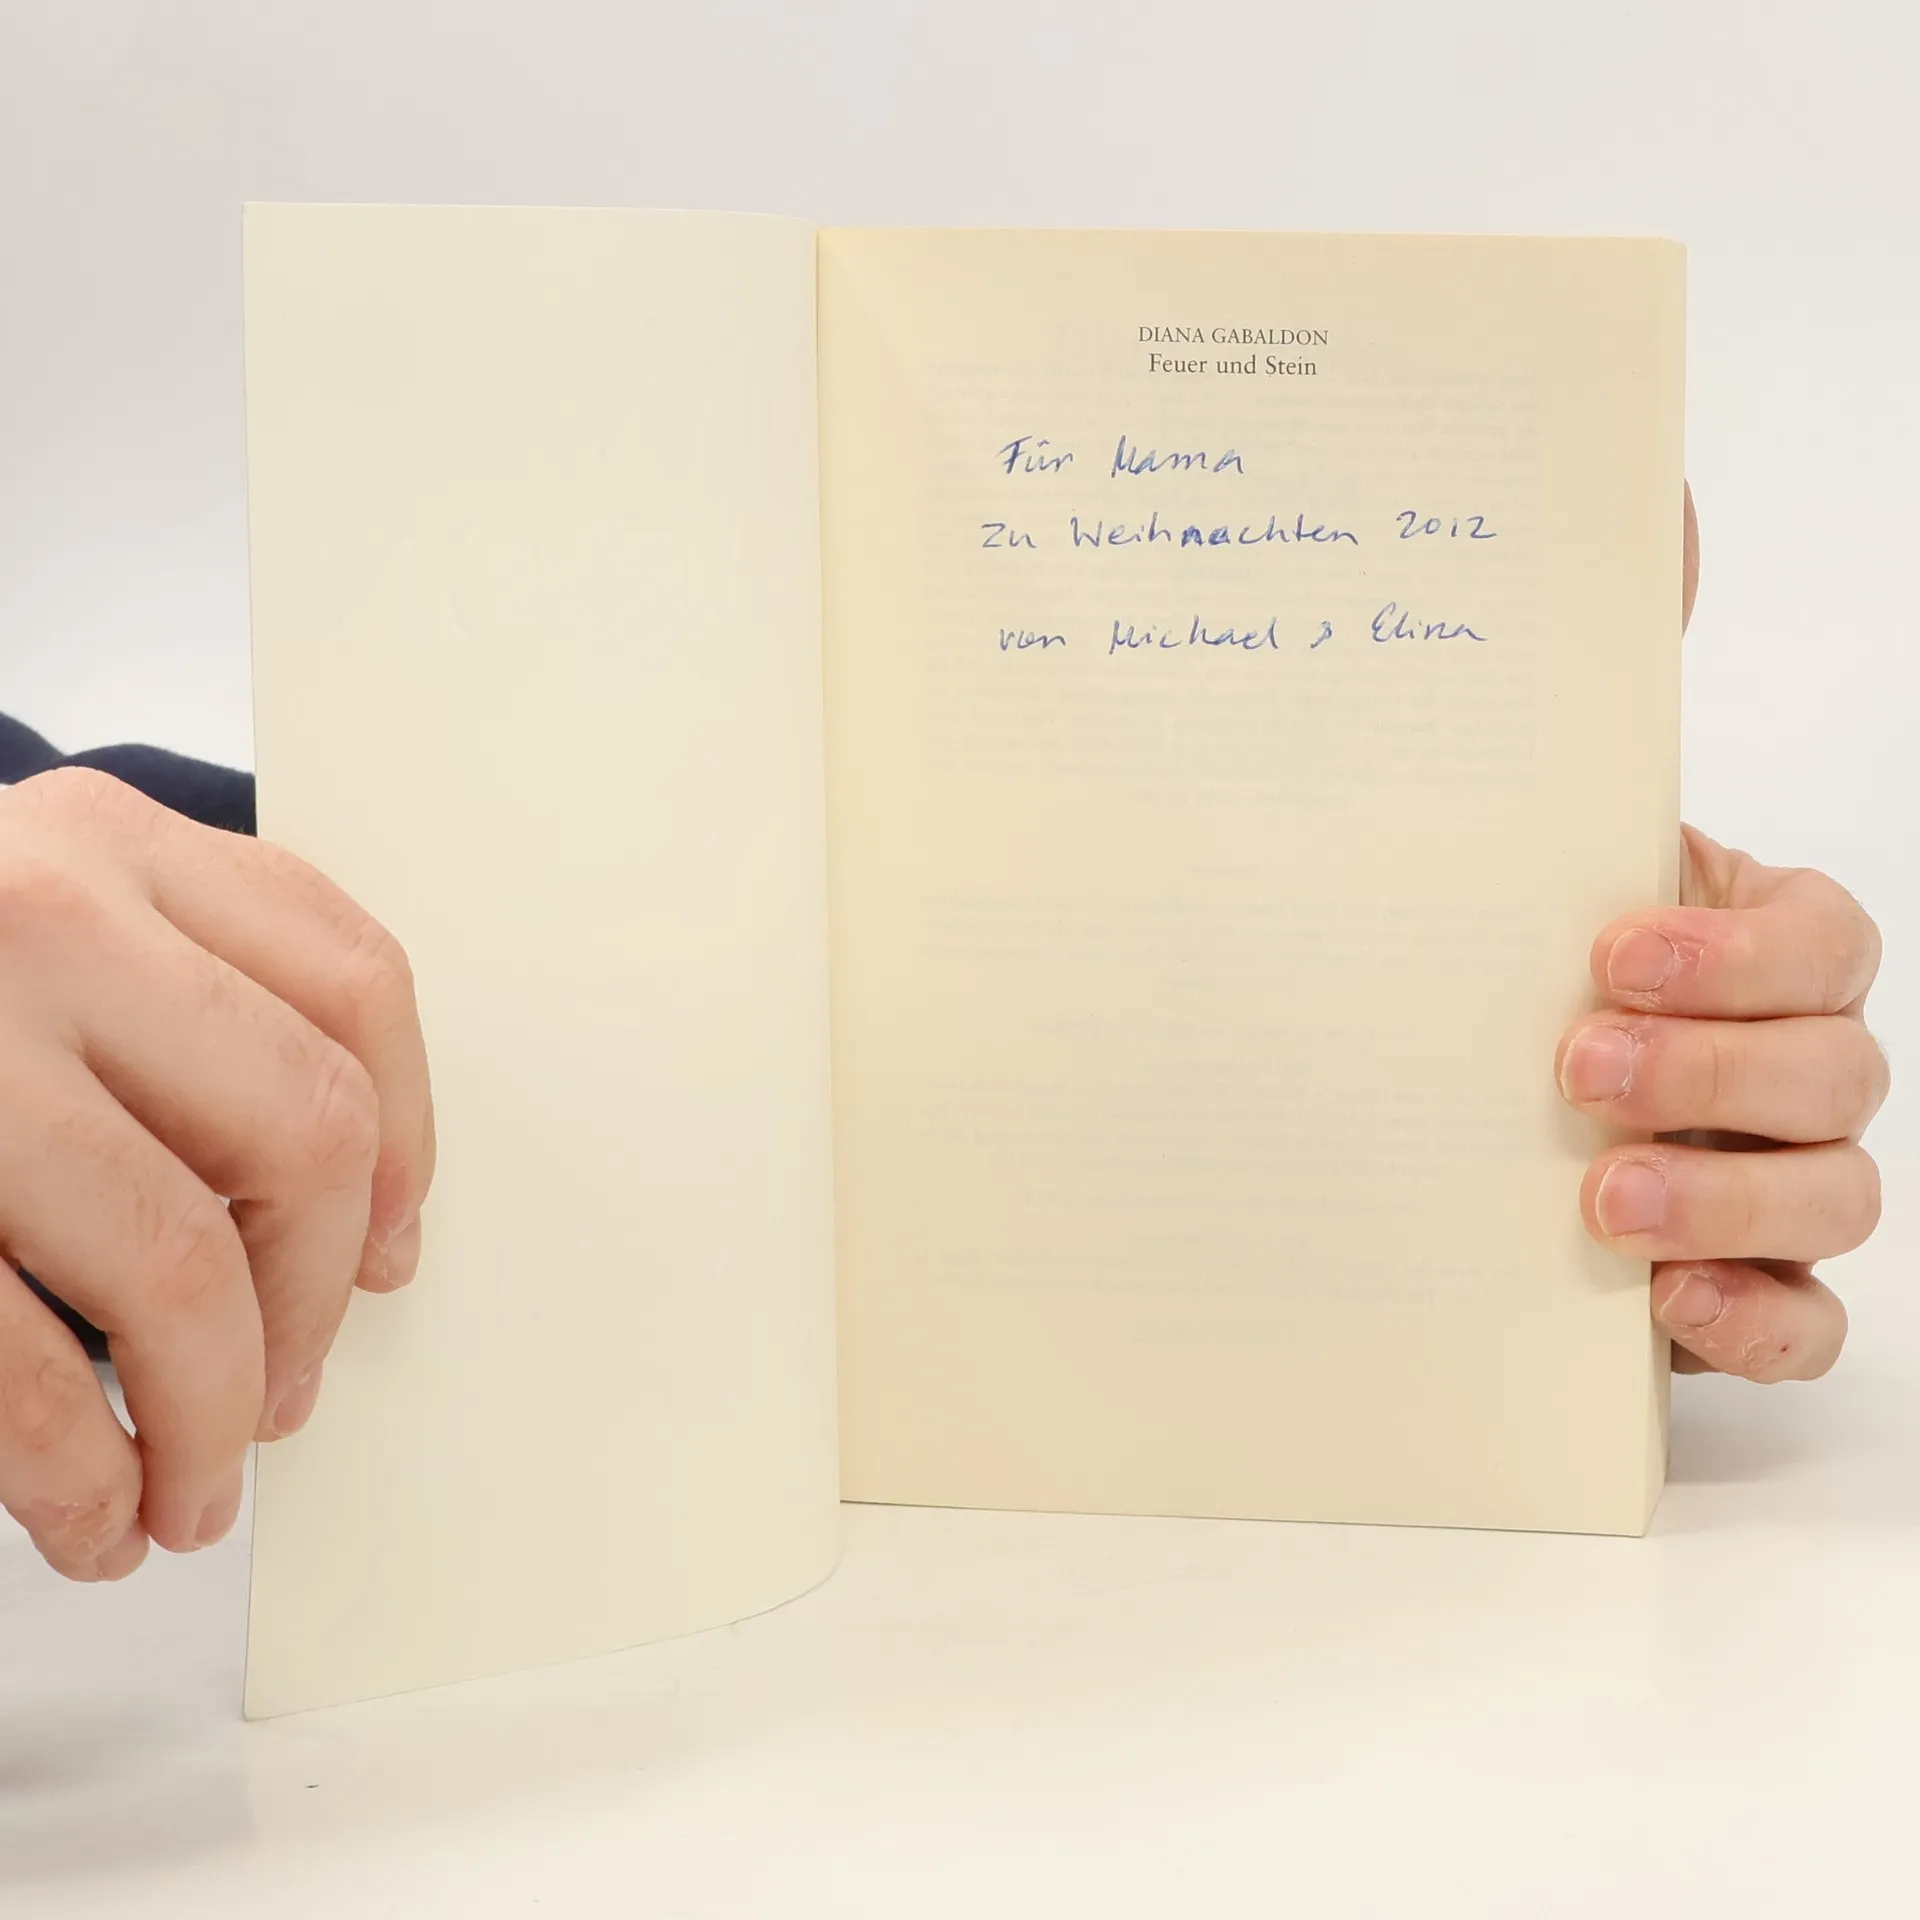 DIANA GABALDON
Feuer und Stein
Für Mama
zu Weihnachten 2012
von Michael & Elina